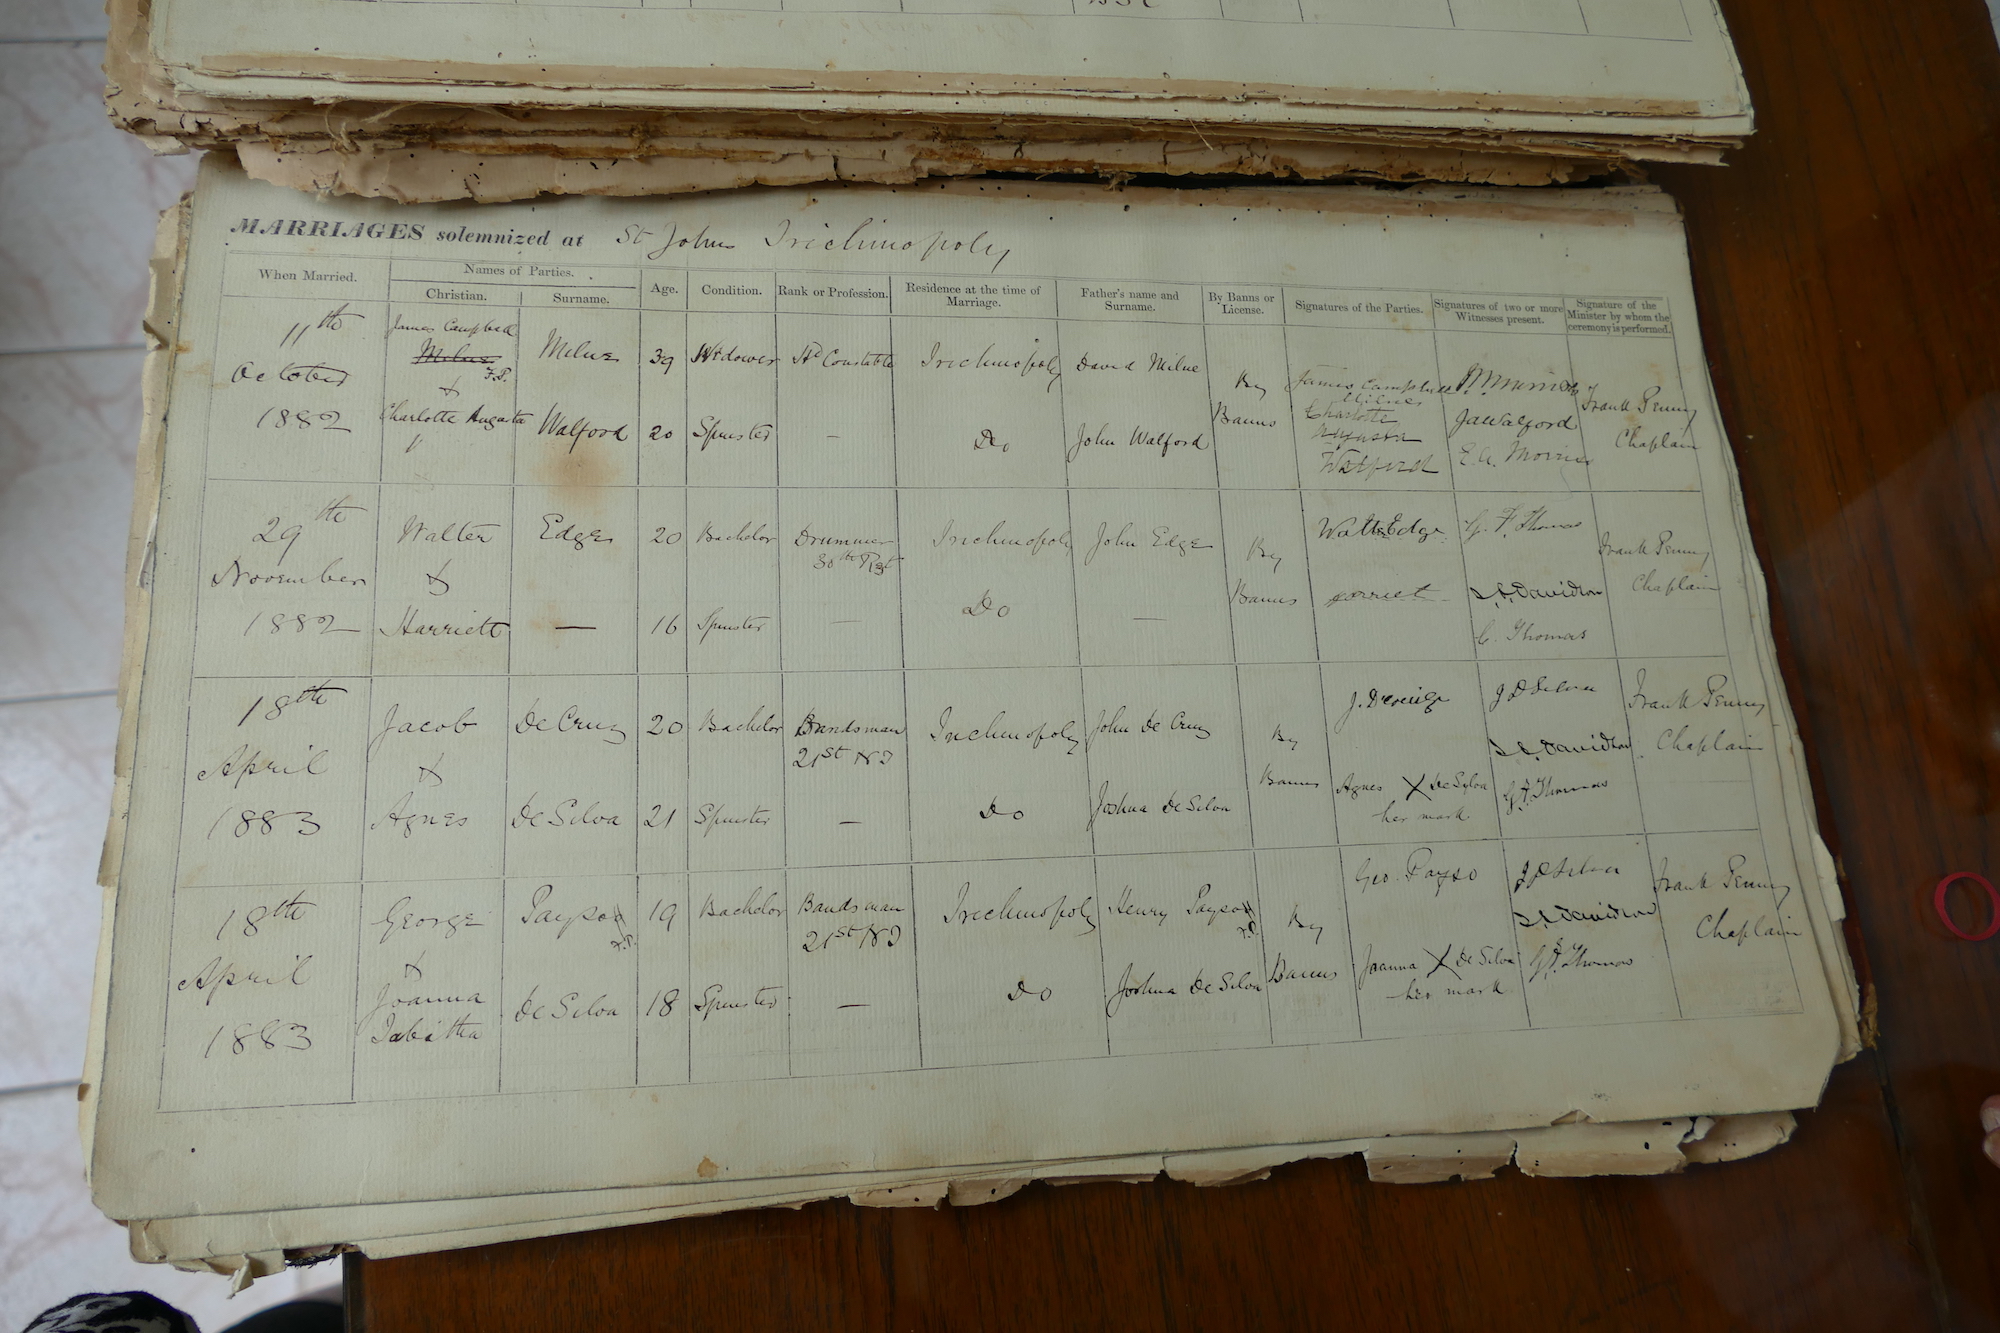 MARRIAGES solemnized at St Johns Trichinopoly
When Married.
Names of Parties.
Christian.
Surname.
Age.
Condition.
Rank or Profession.
Residence at the time of
Marriage.
Father's name and
Surname.
By Banns or
License.
Signatures of the Parties.
Signatures of two or more
Witnesses present.
Signature of the
Minister by whom the
ceremony is performed.
11th
October
1882
James Campbell
Milne
F.P.
&
Charlotte Augusta
Milne
Walford
39
20
Widower
Spinster
Hd Constable
—
Trichinopoly
Do
David Milne
John Walford
By
Banns
James Campbell
Milne
Charlotte
Augusta
Walford
JAWalford
E. A. Morris
Frank Penny
Chaplain
29th
November
1882
Walter
&
Harriett
Edge
—
20
16
Bachelor
Spinster
Drummer
30th Rgt
—
Trichinopoly
Do
John Edge
—
By
Banns
Walter Edge
G. F. Thomas
Davidson
C. Thomas
Frank Penny
Chaplain
18th
April
1883
Jacob
&
Agnes
De Cruz
De Silva
20
21
Bachelor
Spinster
Bandsman
21st NI
—
Trichinopoly
Do
John De Cruz
Joshua De Silva
By
Banns
Agnes X De Silva
her mark
J D Silva
Davidson
G. F. Thomas
Frank Penny
Chaplain
18th
April
1883
George
&
Joanna
Tabitha
Payso
F.P.
De Silva
19
18
Bachelor
Spinster
Bandsman
21st NI
—
Trichinopoly
Do
Henry Payso
F.P.
Joshua De Silva
By
Banns
Geo. Payso
Joanna X De Silva
her mark
J D Silva
Davidson
G. F. Thomas
Frank Penny
Chaplain